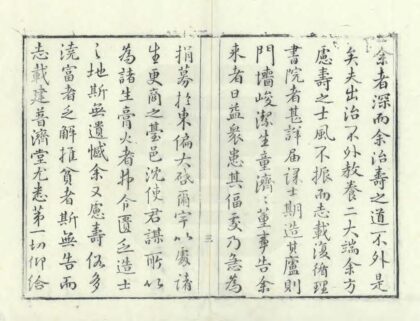 余者深而余治壽之道不外是
矣夫出治不外教養二大端余方
慮壽之士風不振而志載復循理
書院者甚詳届課士期造其廬則
門墻峻潔生童濟〻董事告余
来者日益衆患其偪窄乃急為
三
捐募於東偏大啟爾宇以處諸
生更商之基邑沈使君謀所以
為諸生膏火者弗令匱乏造士
〻地斯無遺憾余又慮壽俗多
澆富者之解推貧者斯無告而
志載建普濟堂尤悉第一切仰給